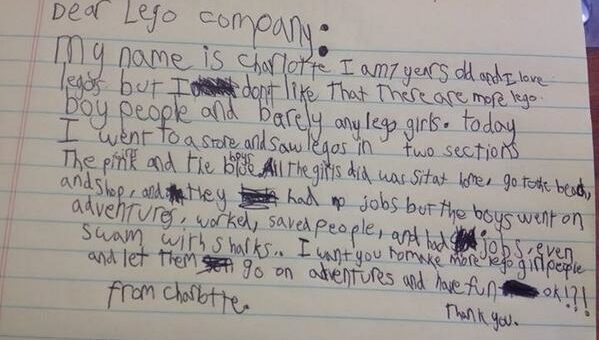 Dear Lego company:
My name is Charlotte I am 7 years old and I love
legos but I don't like that there are more lego
boy people and barely any lego girls. today
I went to a store and saw legos in two sections
The pink and the blue boys. All the girls did was sit at home, go to the beach,
and shop, and they had no jobs but the boys went on
adventures, worked, saved people, and had jobs, even
swam with sharks.. I want you to make more lego girl people
and let them go on adventures and have fun ok!?!
from Charlotte.
Thank you.